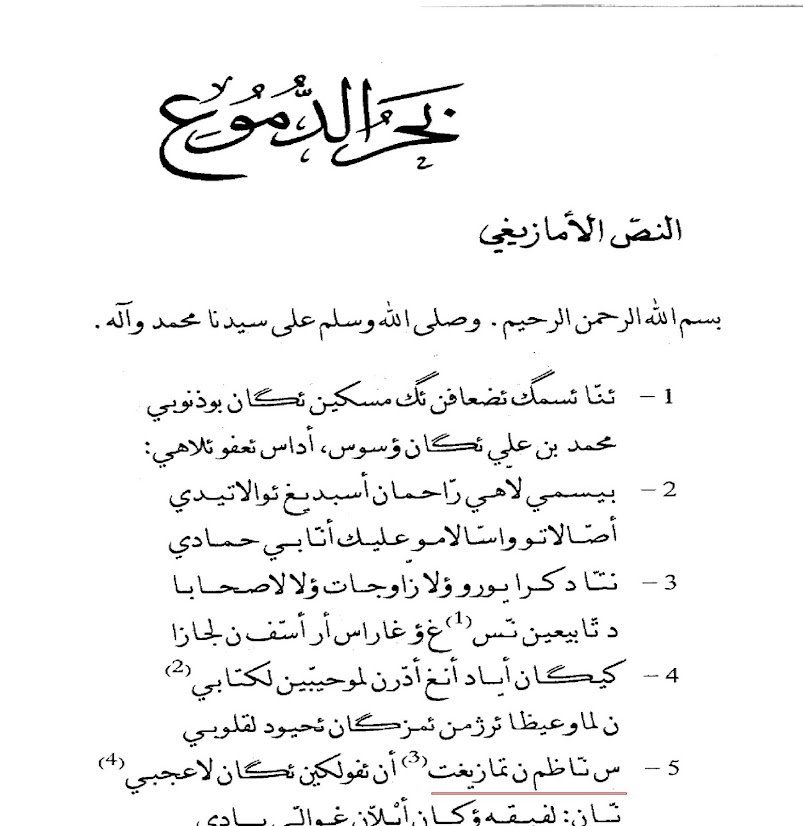 بَحْرُ الدُّمُوعِ
النصّ الأمازيغي
بسم الله الرحمن الرحيم . وصلى الله وسلم على سيدنا محمد وآله .
1 – ئنّا ئسمگ ئضعافن ئگ مسكين ئگان بوذنوبي
محمد بن علي ئگان ؤسوس، أداس ئعفو ئلاهي:
2 – بيسمي لاهي رّاحمان أسبديغ ئوالاتيدي
أصّالاتو واسّالامو عليك أنّابي حمادي
3 – نتّا د كرا يورو ؤلا زّاوجات ؤلا لاصحابا
د تّابيعين نّس(1) غ ؤغاراس أر أسّف ن لجازا
4 – كيگان أياد أنغ أدّرن لموحيبّين لكتابي(2)
ن لماوعيظا ئرژمن ئمزگان ئحيود لقلوبي
5 – س نّاظم ن تمازيغت(3) أن ئفولكين ئگان لاعجبي(4)
نّان: لفيقه ؤكان أيلاّن غوالّي يادي